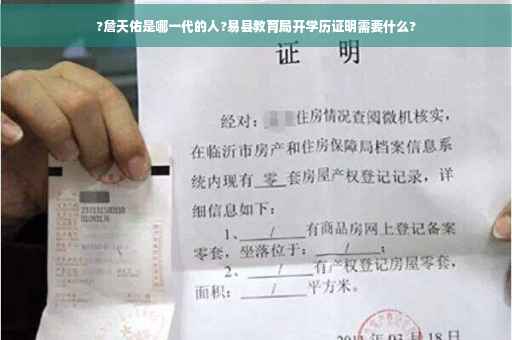 ?詹天佑是哪一代的人?易县教育局开学历证明需要什么?
证 明
经对: 住房情况查阅微机核实,
在临沂市房产和住房保障局档案信息系
统内现有 零 套房屋产权登记记录，详
细信息如下：
1、 / 有商品房网上登记备案
零套，坐落位于： / ；
2、 / 有产权登记房屋零套，
面积： / 平方米。
03月18日